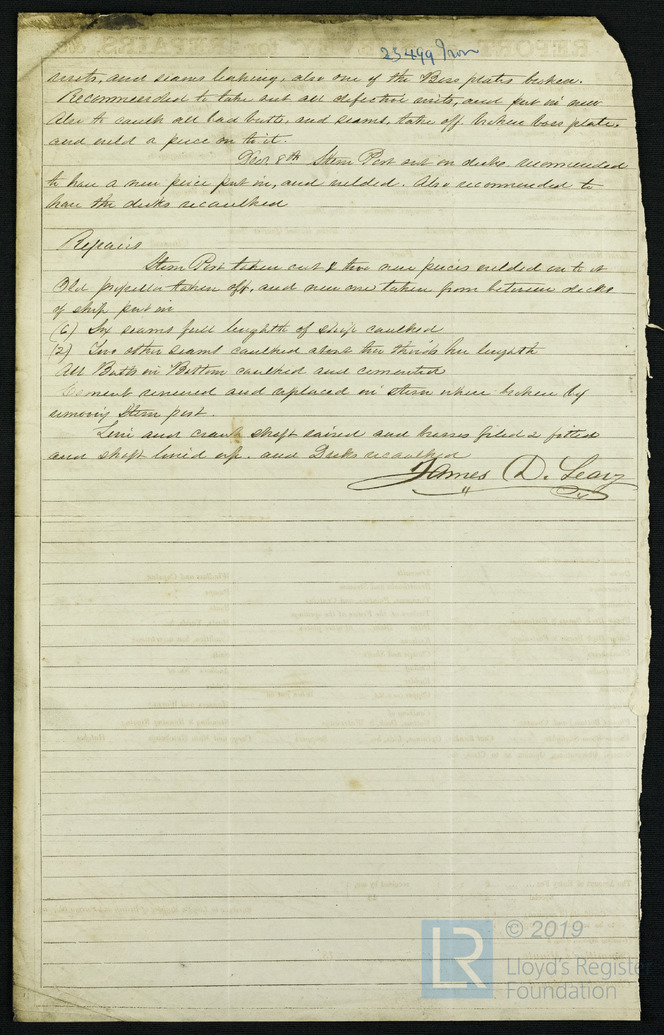 25499 Iron
rivets, and seams leaking, also one of the Boss plates broken.
Recommended to take out all defective rivets, and put in new
Also to caulk all bad butts, and seams, take off broken boss plate,
and weld a piece on to it.
8th Stern Post out on docks recommended
to have a new piece put in, and welded. Also recommended to
have the decks recaulked
Repairs
Stern Post taken out & two new pieces welded on to it
Old propeller taken off, and new one taken from between decks
of ship put in
(6) Six seams full lenghth of ship caulked
(2) Two other seams caulked about two thirds her lenghth
All Butts in Bottom caulked and cemented
Cement renewed and replaced in stern where broken by
removing Stern post.
and crank shaft raised and brasses filed & fitted
and shaft lined up. and Decks recaulked
James D. Leary
© 2019
LR
Lloyd's Register
Foundation